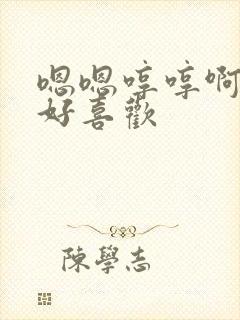 嗯嗯哼哼啊
好喜歡
陳學志